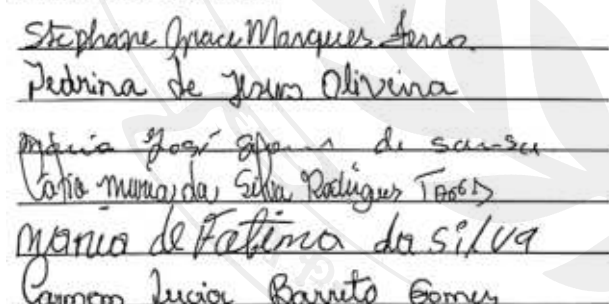 Stephane Grace Marques Ferro
Pedrina de Jesus Oliveira
Maria José de Sousa
Catia Maria da Silva Rodrigues
Maria de Fatima da Silva
Carmem Lucia Barreto Gomes